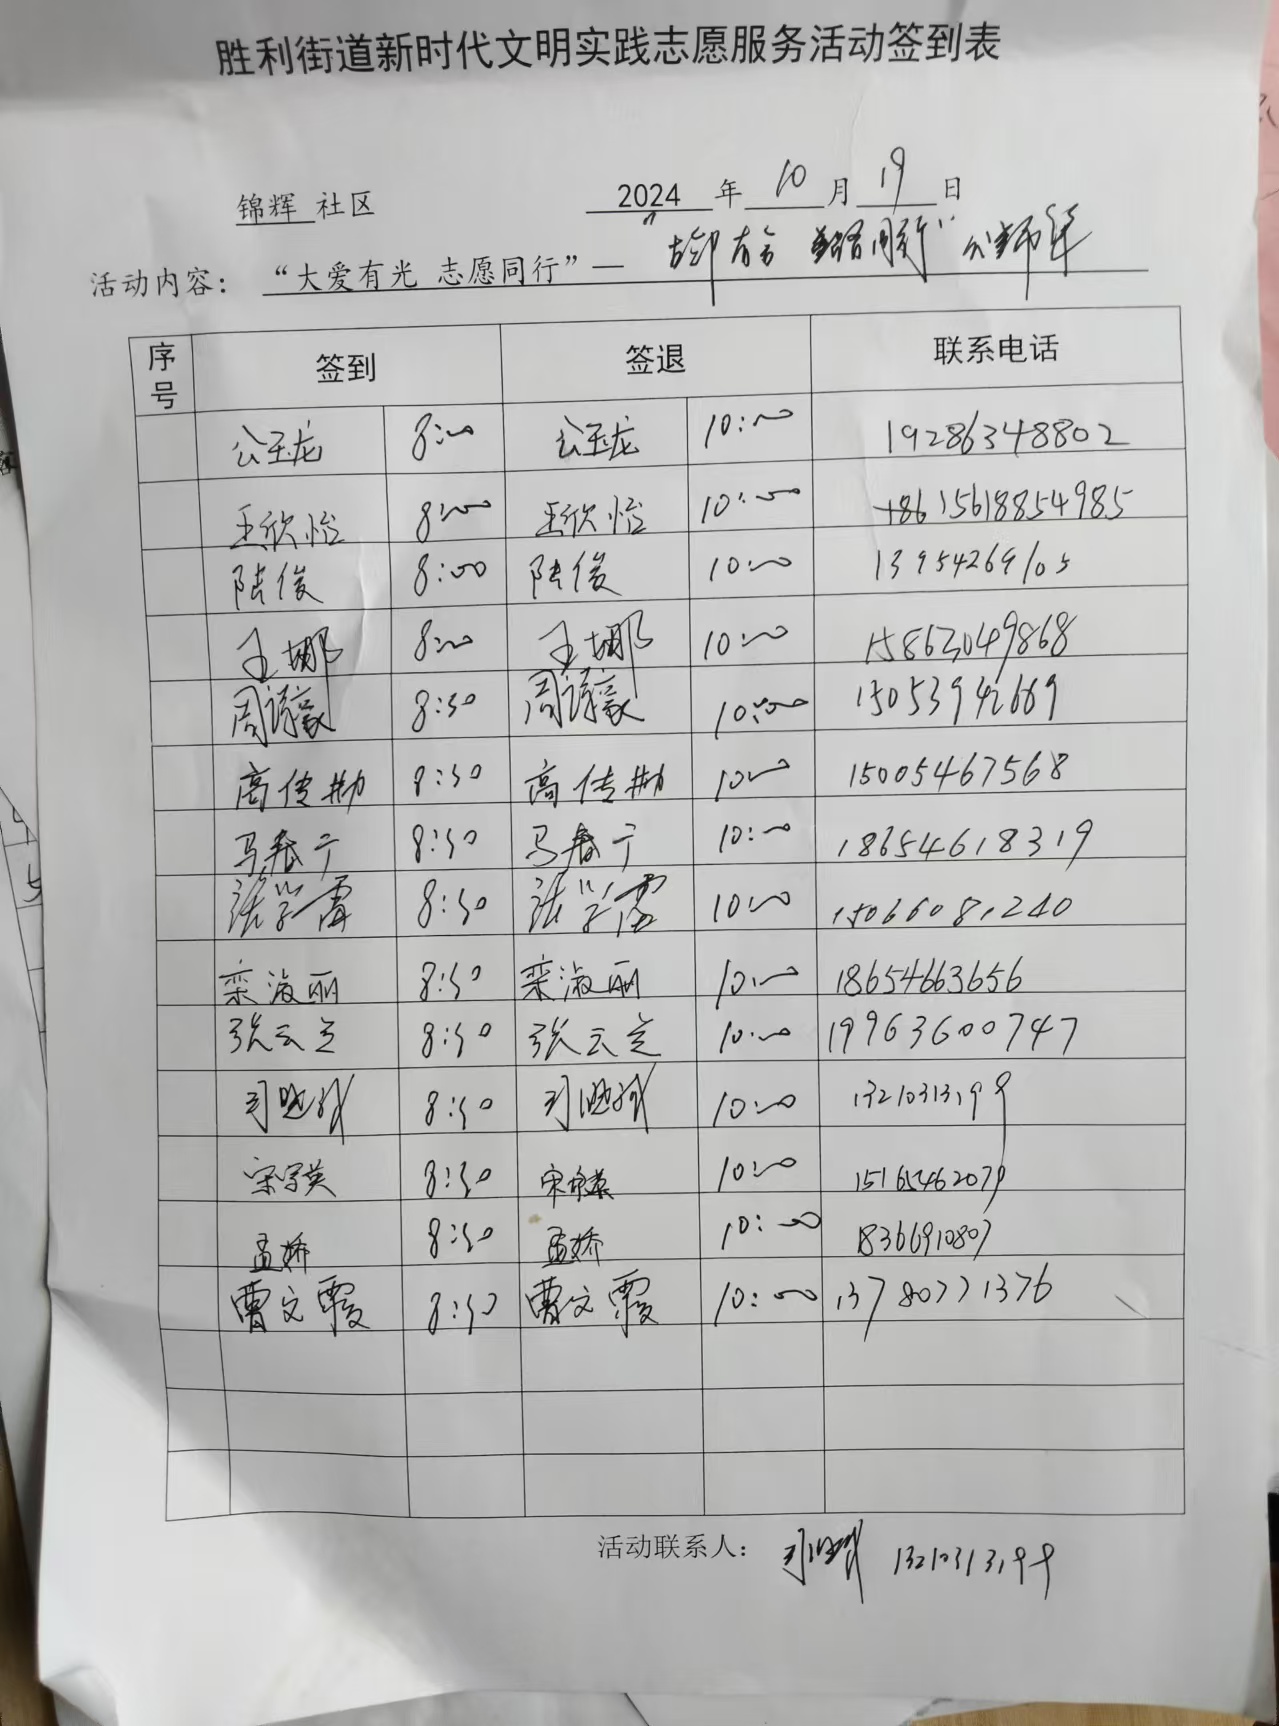 胜利街道新时代文明实践志愿服务活动签到表
锦辉 社区 2024 年 10 月 19 日
活动内容：“大爱有光 志愿同行”—
序号 签到 签退 联系电话
公玉龙 8:00 公玉龙 10:00 19286348802
王欣怡 8:00 王欣怡 10:00 +8615618854985
陆俊 8:00 陆俊 10:00 13954269105
王娜 8:00 王娜 10:00 15863049868
周 8:30 周 10:00
高传勋 8:30 高传勋 10:00 15005467568
马春宁 8:30 马春宁 10:00 18654618319
8:30 10:00 15066081240
栾淑丽 8:30 栾淑丽 10:00 18654663656
张云芝 8:30 张云芝 10:00 19963600747
司 8:30 司 10:00 13210313199
宋 英 8:30 宋 英 10:00 15165462079
孟娇 8:30 孟娇 10:00 18366910807
曹文霞 8:30 曹文霞 10:00 13780771376
活动联系人： 司 13210313199